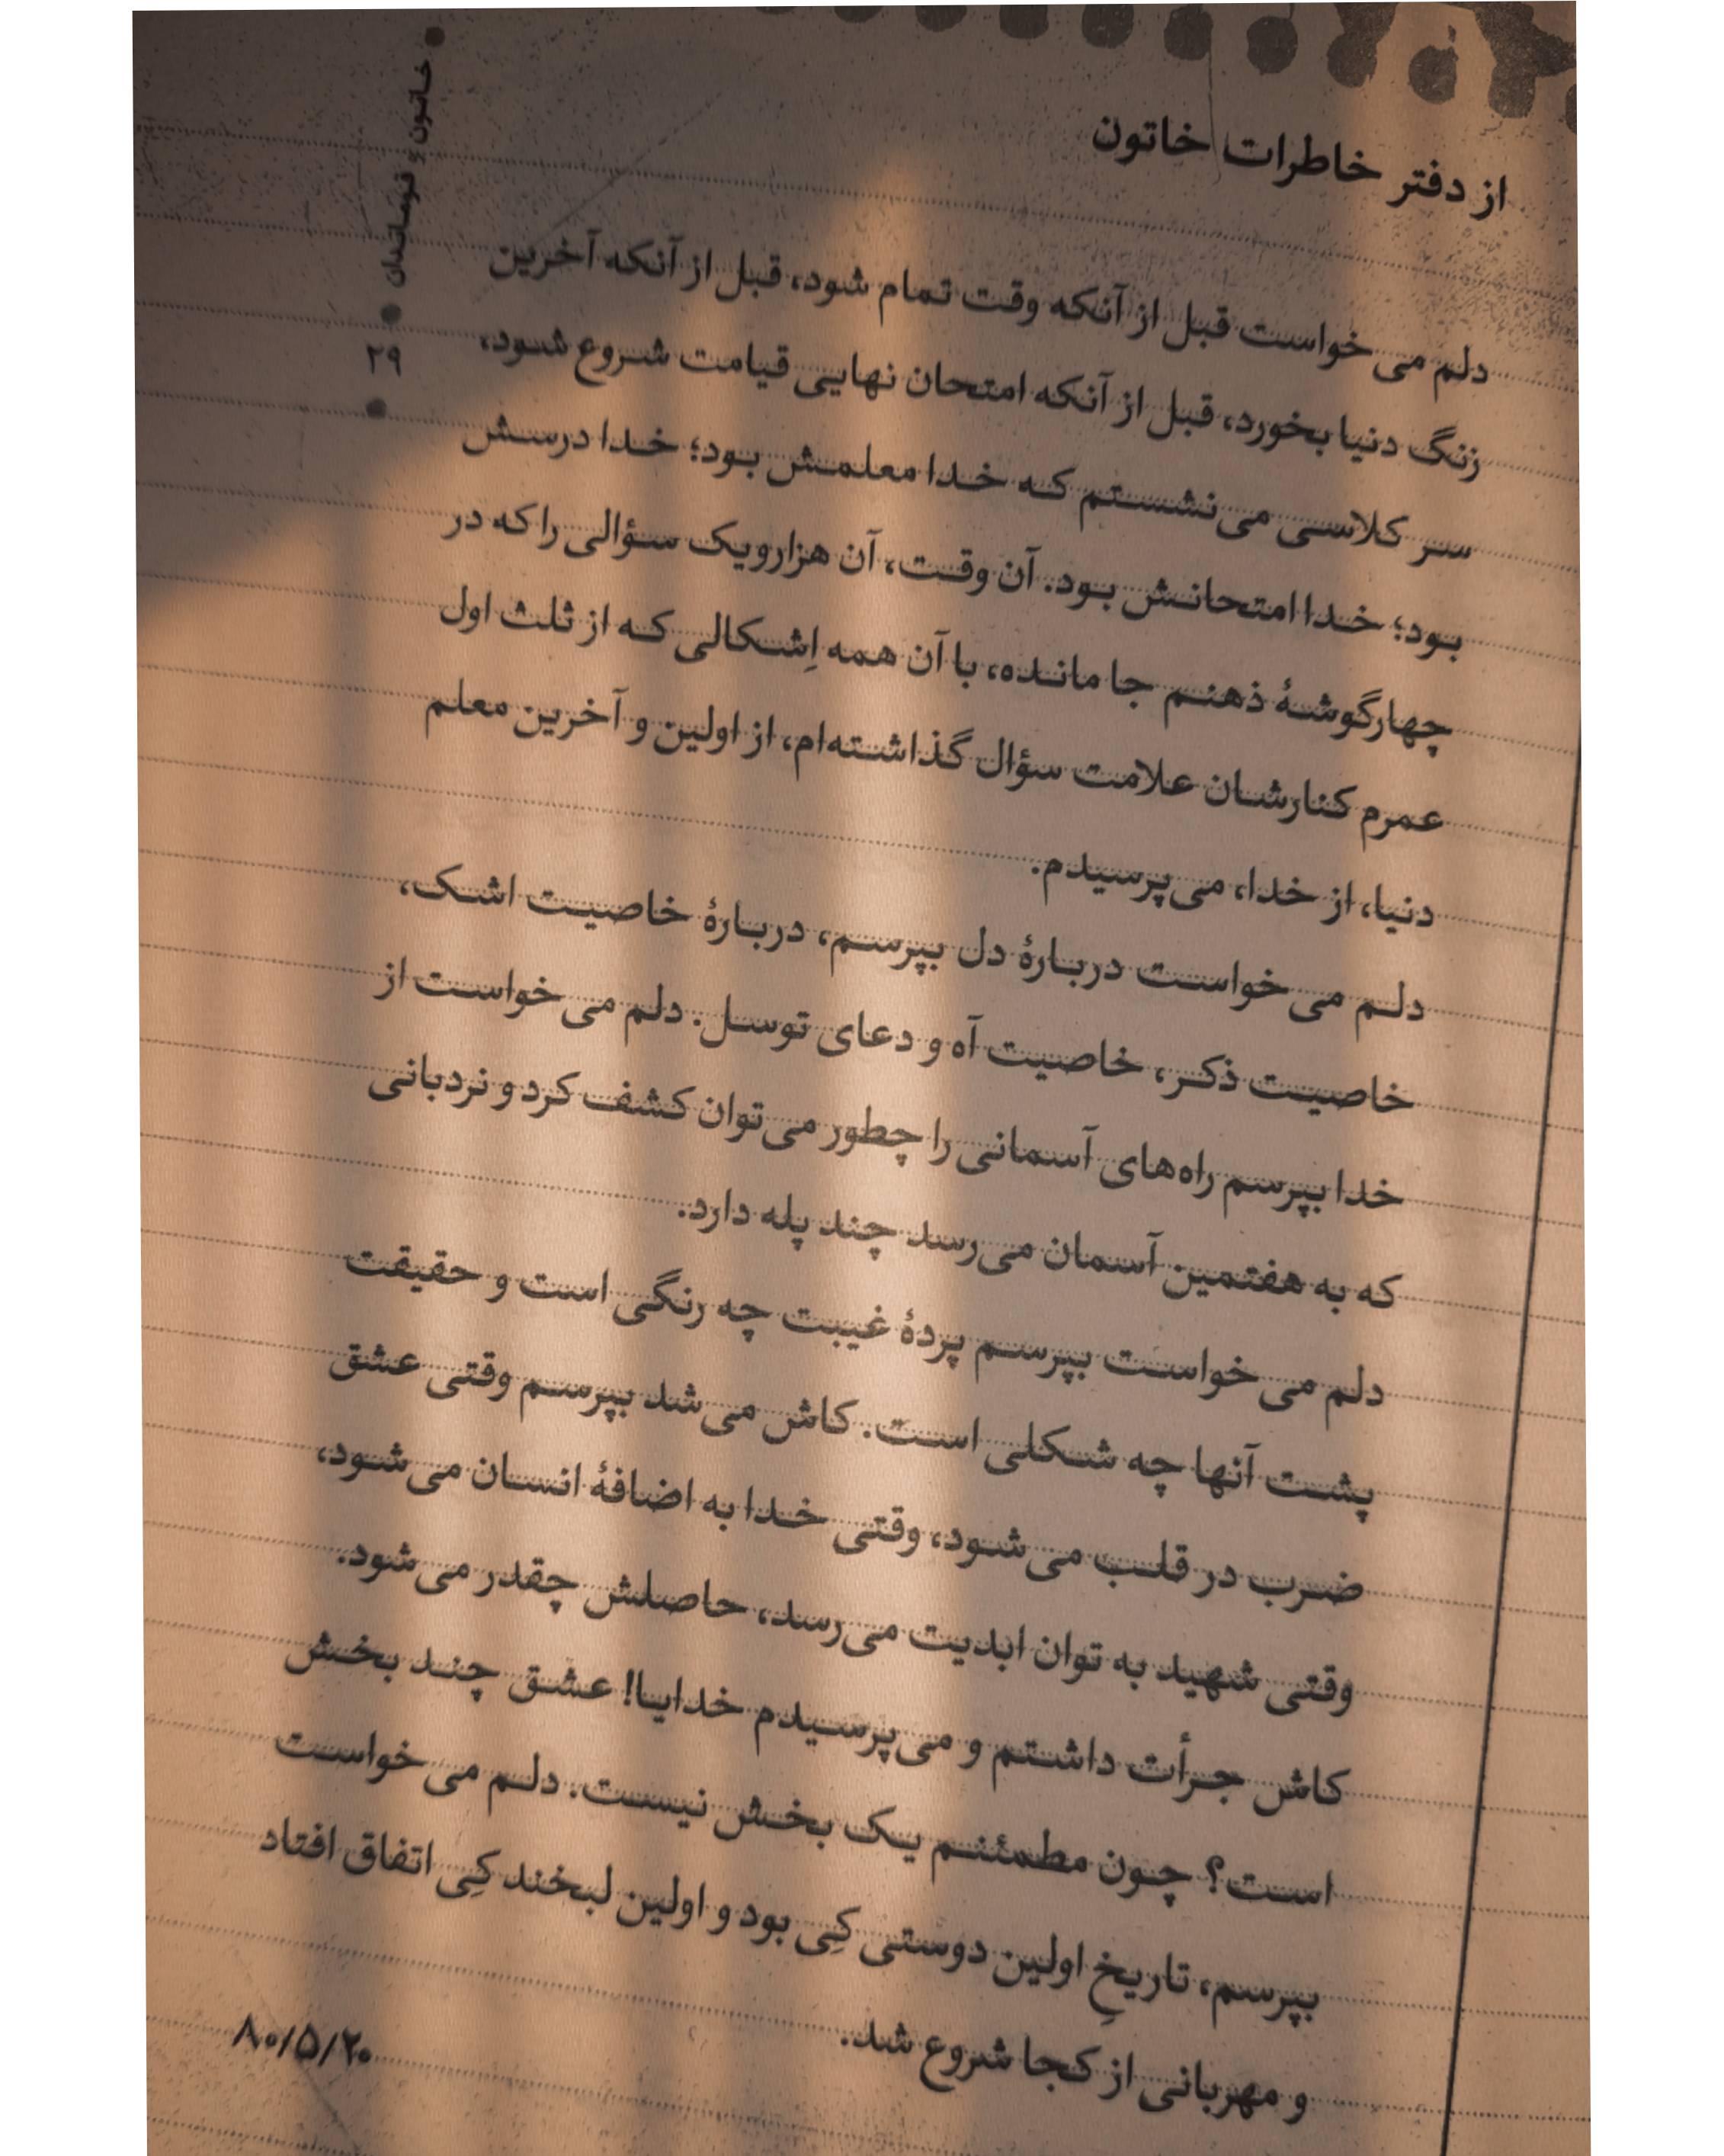 از دفتر خاطرات خاتون
دلم می‌خواست قبل از آنکه وقت تمام شود، قبل از آنکه آخرین
زنگ دنیا بخورد، قبل از آنکه امتحان نهایی قیامت شروع شود،
سر کلاسی می‌نشستم که خدا معلمش بود؛ خدا درسش
بود؛ خدا امتحانش بود. آن وقت، آن هزارویک سؤالی را که در
چهارگوشهٔ ذهنم جا مانده، با آن همه اِشکالی که از ثلث اول
عمرم کنارشان علامت سؤال گذاشته‌ام، از اولین و آخرین معلم
دنیا، از خدا، می‌پرسیدم.
دلم می‌خواست دربارهٔ دل بپرسم، دربارهٔ خاصیت اشک،
خاصیت ذکر، خاصیت آه و دعای توسل. دلم می‌خواست از
خدا بپرسم راه‌های آسمانی را چطور می‌توان کشف کرد و نردبانی
که به هفتمین آسمان می‌رسد چند پله دارد.
دلم می‌خواست بپرسم پردهٔ غیبت چه رنگی است و حقیقت
پشت آنها چه شکلی است. کاش می‌شد بپرسم وقتی عشق
ضرب در قلب می‌شود، وقتی خدا به اضافهٔ انسان می‌شود،
وقتی شهید به توان ابدیت می‌رسد، حاصلش چقدر می‌شود.
کاش جرأت داشتم و می‌پرسیدم خدایا! عشق چند بخش
است؟ چون مطمئنم یک بخش نیست. دلم می‌خواست
بپرسم، تاریخِ اولین دوستی کِی بود و اولین لبخند کِی اتفاق افتاد
و مهربانی از کجا شروع شد.
۸۰/۵/۲۰
خاتون و قوماندان
۲۹